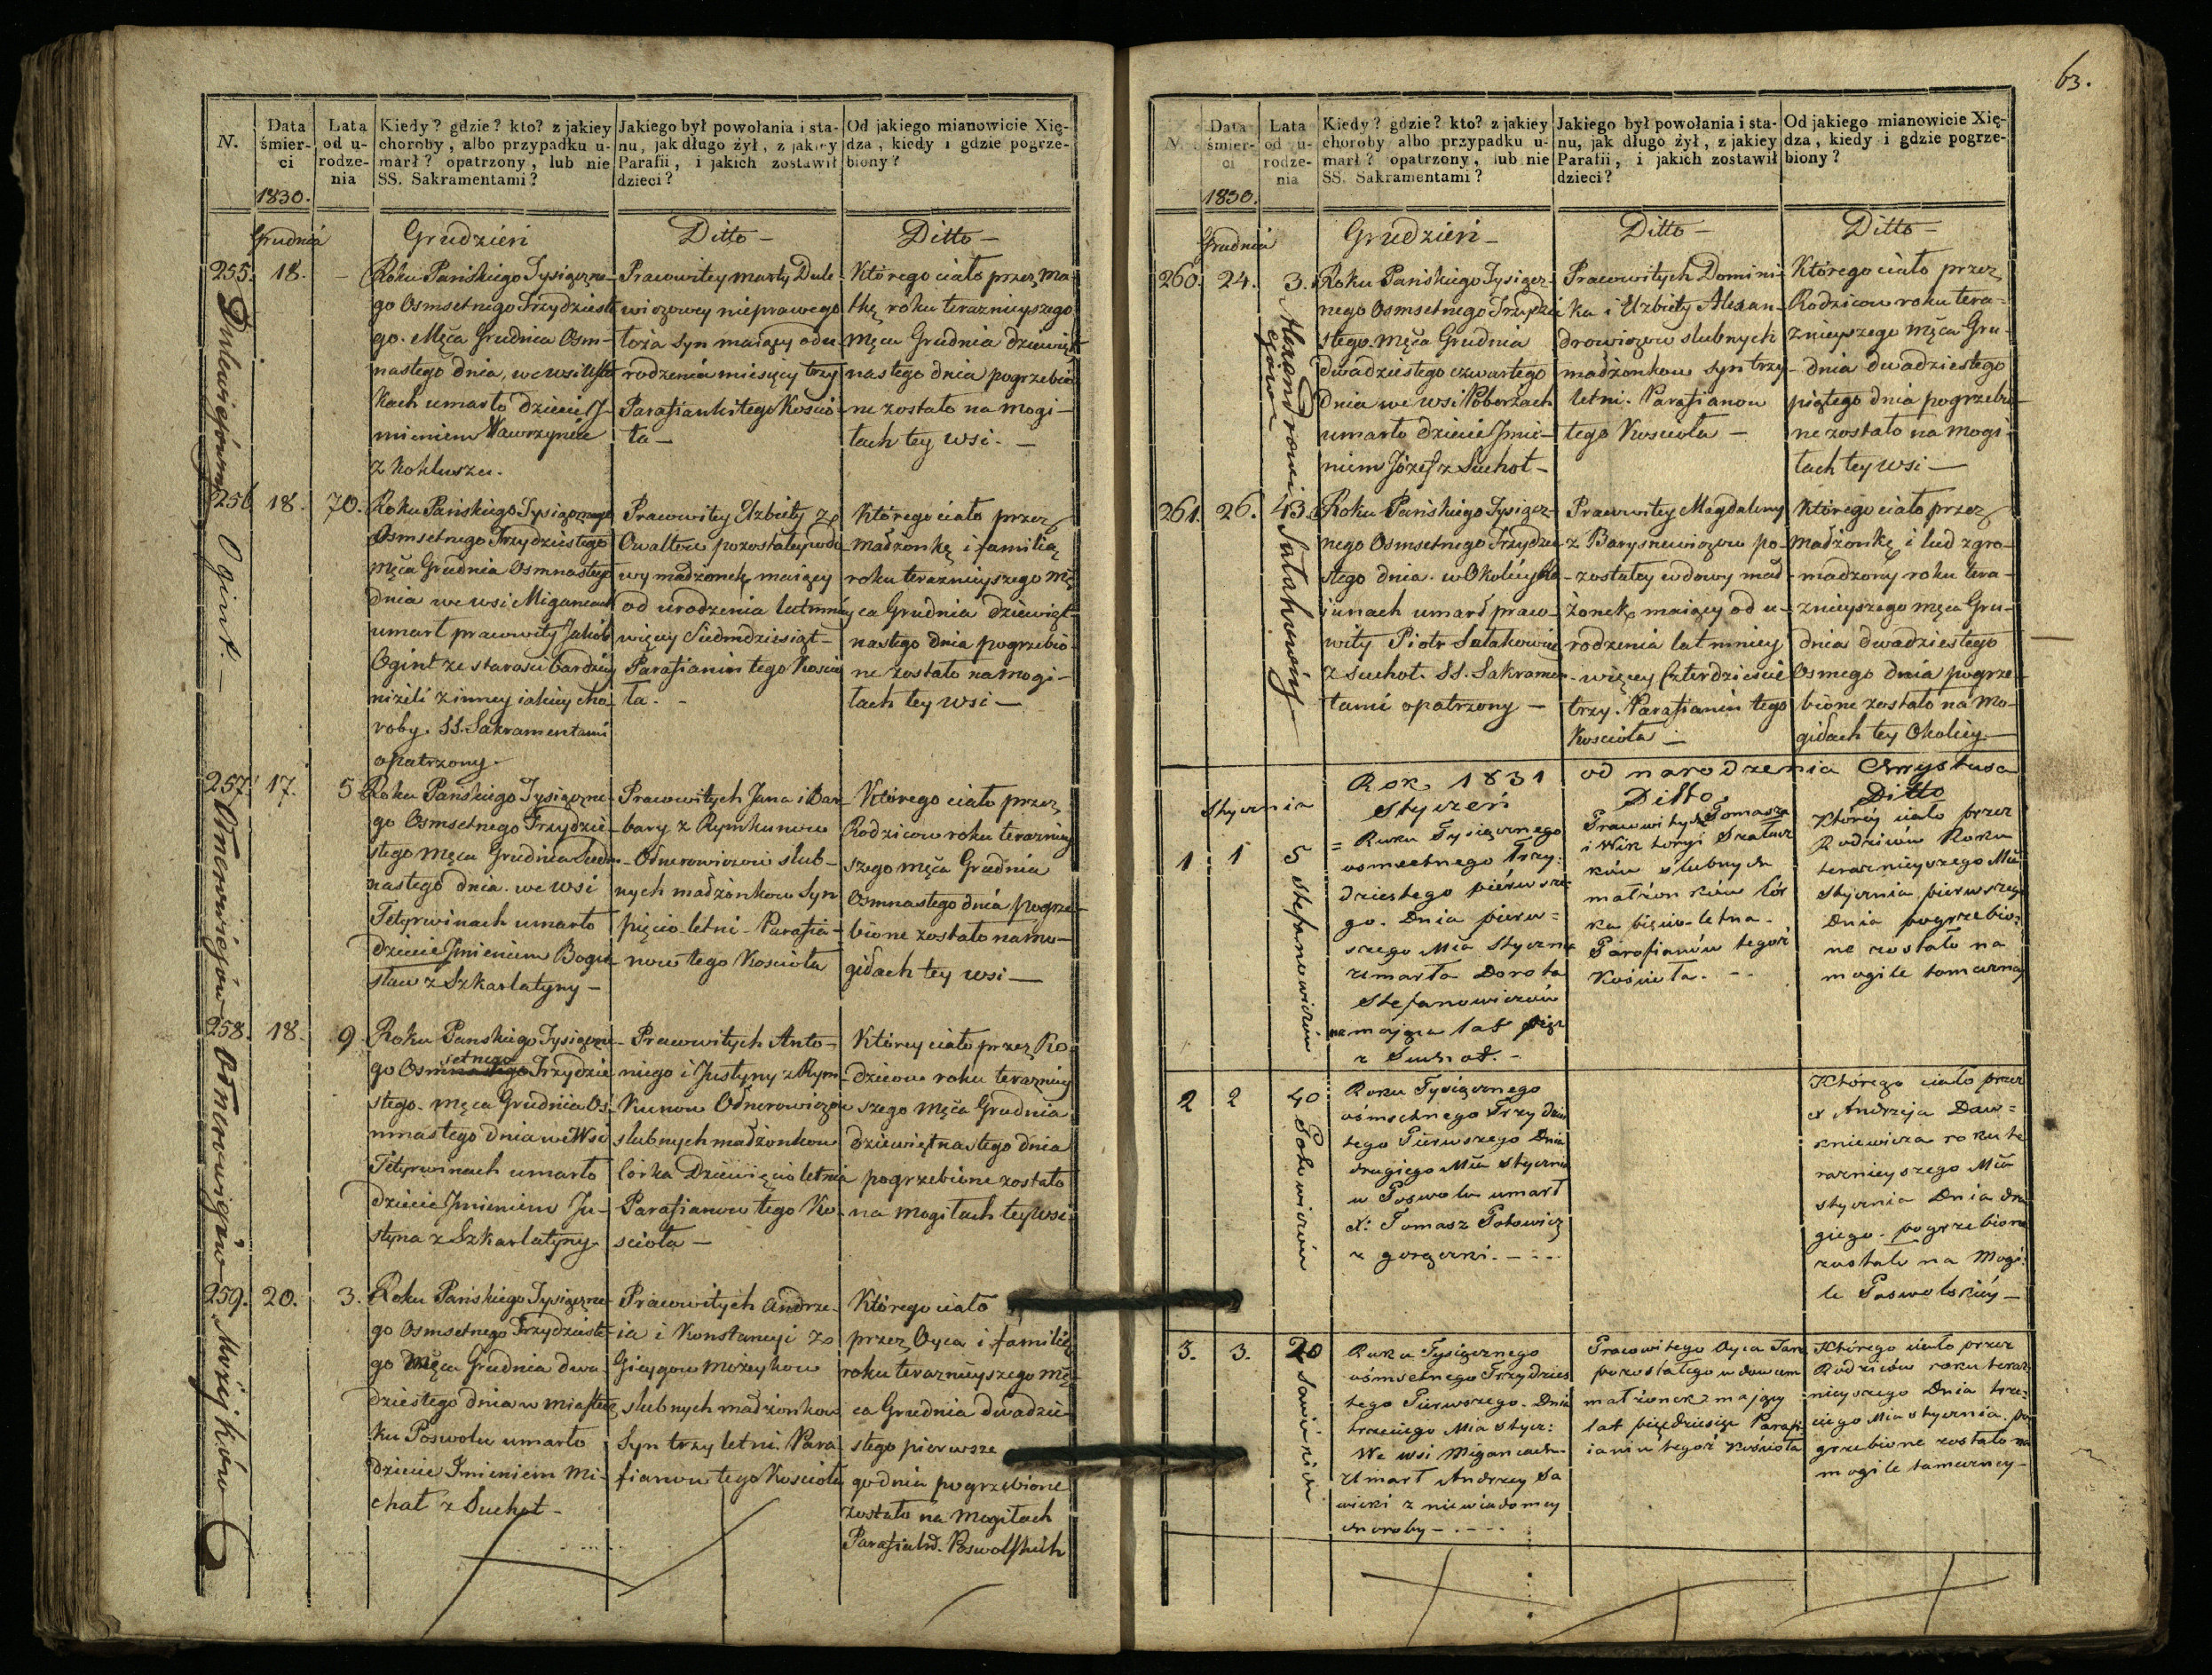 63.
N.
Data śmier-ci
1830.
Lata od u-rodze-nia
Kiedy? gdzie? kto? z jakiey
choroby, albo przypadku u-
marł? opatrzony, lub nie
SS. Sakramentami?
Jakiego był powołania i sta-
nu, jak długo żył, z jakiey
Parafii, i jakich zostawił
dzieci?
Od jakiego mianowicie Xię-
dza, kiedy i gdzie pogrze-
biony?
Grudnia
Grudzień
Ditto -
Ditto -
255. 18. -
Roku Pańskiego Tysiączne-
go Osmsetnego Trzydzieste
go. Mśca Grudnia Osm-
nastego dnia, we wsi
kach umarło dziecie J-
mieniem Wawrzyniec
z Kokluszu.
Pracowitey Marty Dule-
wiczowey nieprawego
łoża Syn maiący od u-
rodzenia miesięcy trzy
Parafianki tego Kościo-
ła -
Którego ciało przez Ma-
tkę roku teraznieyszego
Mśca Grudnia dziewięt-
nastego dnia pogrzebio-
ne zostało na Mogi-
łach tey wsi. -
256 18. 70.
Ogint. -
Roku Pańskiego Tysiącznego
Osmsetnego Trzydziestego
Mśca Grudnia Osmnastego
dnia we wsi Migancach
umarł pracowity Jakób
Ogint ze starości bardziey
niżeli z inney iakiey cho
roby. SS. Sakramentami
opatrzony.
Pracowitey Elzbiety z
pozostałey wdo
wy małżonek, maiący
od urodzenia lat mniey
więcey Siedmdziesiąt -
Parafianin tego Kościo
ła. -
Którego ciało przez
Małżonkę i familią
roku teraznieyszego Mś
ca Grudnia dziewięt-
nastego dnia pogrzebio-
ne zostało na Mogi-
łach tey wsi -
257. 17. 5
Roku Pańskiego Tysiączne-
go Osmsetnego Trzydzie-
stego Mśca Grudnia Siedm-
nastego dnia. we wsi
Tetyrwinach umarło
dziecie Jmieniem Bogu-
sław z Szkarlatyny -
Pracowitych Jana i Bar-
bary z Rymkunow
Odnerowiczow slub-
nych małżonkow Syn
pięcio-letni. Parafia-
now tego Kościoła
Którego ciało przez
Rodzicow roku teraźniey
szego Mśca Grudnia
Osmnastego dnia pogrze-
bione zostało na mo-
giłach tey wsi -
258. 18. 9
Roku Pańskiego Tysiączne-
setnego
go Osmnastego Trzydzie
stego. Mśca Grudnia Oś-
mnastego dnia we Wsi
Tetyrwinach umarło
dziecie Jmieniem Ju-
styna z Szkarlatyny.
Pracowitych Anto-
niego i Justyny z Rym-
kunow Odnerowiczow
slubnych małżonkow
Córka Dziewięcio letnia
Parafianow tego Ko-
ścioła -
Którey ciało przez Ro-
dzicow roku teraźniey
szego Mśca Grudnia
dziewiętnastego dnia
pogrzebione zostało
na Mogiłach tey wsi
259. 20. 3.
Roku Pańskiego Tysiączne-
go Osmsetnego Trzydzieste-
go Mśca Grudnia dwu
dziestego dnia w miastecz
ku Poswolu umarło
dziecie Imieniem Mi-
chał z Suchot -
Pracowitych Andrze-
ia i Konstancyi z
Możeykow
slubnych małżonkow
Syn trzy letni. Para-
fianow tego Kościoła
Którego ciało
przez Oyca i familię
roku teraznieyszego Mś-
ca Grudnia dwadzie-
stego pierwsze
go dnia pogrzebione
zostało na Mogiłach
Parafialn. Poswolskich
N.
Data śmier-ci
1830.
Lata od u-rodze-nia
Kiedy? gdzie? kto? z jakiey
choroby albo przypadku u-
marł? opatrzony, lub nie
SS. Sakramentami?
Jakiego był powołania i sta-
nu, jak długo żył, z jakiey
Parafii, i jakich zostawił
dzieci?
Od jakiego mianowicie Xię-
dza, kiedy i gdzie pogrze-
biony?
Grudnia
Grudzień -
Ditto -
Ditto -
260. 24. 3.
Roku Pańskiego Tysiącz-
nego Osmsetnego Trzydzie
stego. Mśca Grudnia
dwadziestego czwartego
dnia we wsi Poborzach
umarło dziecie Jmie-
niem Józef z Suchot -
Pracowitych Domini-
ka i Elzbiety Alexan-
drowiczow slubnych
małżonkow syn trzy-
letni. Parafianow
tego Kościoła -
Którego ciało przez
Rodzicow roku tera-
znieyszego Mśca Gru-
dnia dwadziestego
piątego dnia pogrzebio-
ne zostało na Mogi-
łach tey wsi -
261. 26. 43.
Roku Pańskiego Tysiącz-
nego Osmsetnego Trzydzie
stego dnia. w Okolicy
junach umarł praco-
wity Piotr Sutakowicz
z Suchot. SS. Sakramen-
tami opatrzony -
Pracowitey Magdaleny
z Barysnewiczow po-
zostałey wdowy mał-
żonek, maiący od u-
rodzenia lat mniey
więcey Czterdzieście
trzy. Parafianin tego
Kościoła -
Którego ciało przez
Małżonkę i lud zgro-
madzony roku tera-
znieyszego Mśca Gru-
dnia dwadziestego
Osmego dnia pogrze-
bione zostało na Mo-
giłach tey Okolicy -
Rok 1831 od narodzenia Chrystusa
Stycznia
Styczeń
Ditto
Ditto
1 1 5
Stefanowiczów
= Roku Tysiącznego
osmsetnego Trzy-
dziestego pierwsze-
go. Dnia pierw=
szego Mca Stycznia
Umarła Dorota
Stefanowiczów
na mająca lat pięc
z Suchot. -
Pracowitych Tomasza
i Wiktoryi
ków slubnych
małżonków Cór
ka pięcio-letna.
Parafianów tegoż
Kościoła. - -
Którey ciało przez
Rodziców Roku
teraznieyszego Mca
Stycznia pierwszego
Dnia pogrzebio-
ne zostało na
mogile tameczney
2 2 40
Potowiczów
Roku Tysiącznego
ośmsetnego Trzydzies
tego Pierwszego Dnia
drugiego Mca Stycznia
w Poswolu umarł
N: Tomasz Potowicz
z gorączki. - - -
Którego ciało przez
X Andrzeja Daw=
kniewicza roku te
raznieyszego Mca
Stycznia Dnia dru
giego. pogrzebione
zostało na Mogi
le Poswolskiey -
3. 3. 20
Sawickich
Roku Tysiącznego
ośmsetnego Trzydzies
tego Pierwszego. Dnia
trzeciego Mca Stycz:
We wsi Migancach.
Umarł Andrzey Sa
wicki z niewiadomey
choroby - . - - -
Pracowitego Oyca Jan
pozostałego wdowcem
małżonek mający
lat pięćdziesiąt Parafi
ianin tegoż Kościoła
Którego ciało przez
Rodziców roku teraz-
nieyszego Dnia trze-
ciego Mca Stycznia. po
grzebione zostało na
mogile tameczney -